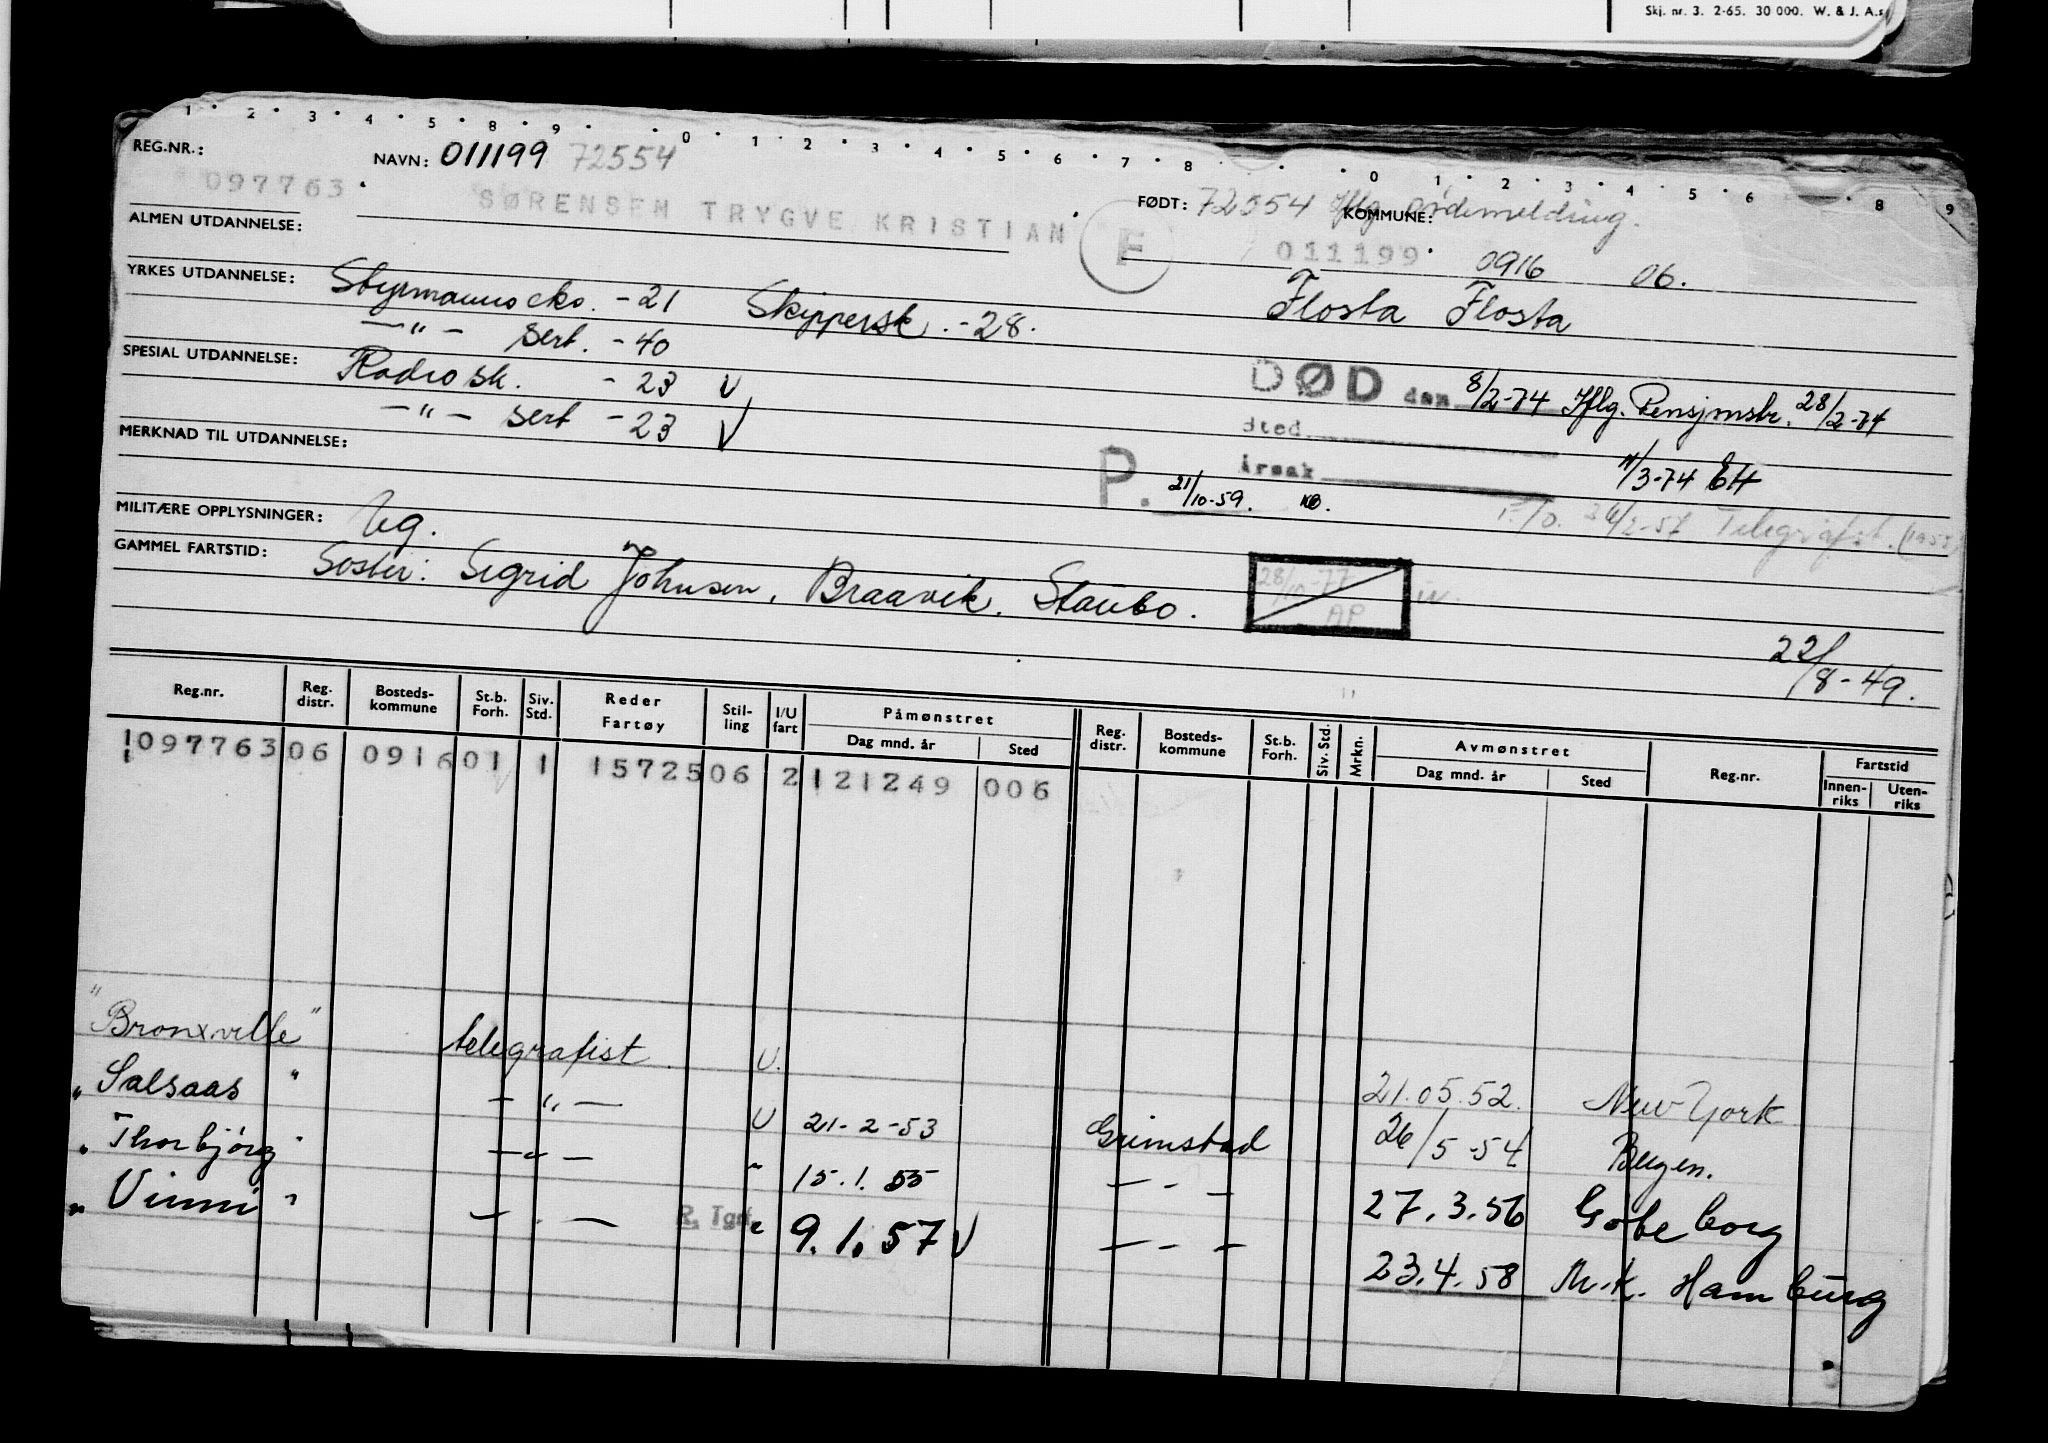 Skj. nr. 3. 2-65. 30 000. W. & J. A.s
1 · 2 · 3 · 4 · 5 · 8 · 9 · · 0 · 1 · 2 · 3 · 4 · 5 · 6 · 7 · 8 · · 0 1 · 2 · 3 · 4 · 5 · 6 8 · 9
REG.NR.: NAVN: 011199 72554
097763 SØRENSEN TRYGVE KRISTIAN F FØDT: 72554 Iflg. KOMMUNE:
011199 0916 06.
ALMEN UTDANNELSE:
YRKES UTDANNELSE: Styrmannseks. -21 Skippersk. -28. Flosta Flosta
—"— sert. -40
SPESIAL UTDANNELSE: Radiosk. -23 V DØD den 8/2-74 Iflg. Pensjmstr. 28/2-74
—"— sert -23 V sted
MERKNAD TIL UTDANNELSE: årsak 11/3-74 EH
P. 21/10-59.
MILITÆRE OPPLYSNINGER: Ug. Telegrafist.
GAMMEL FARTSTID: Søster: Sigrid Johnsen, Braavik, Staubo. 28/10-77 AP
22/8-49.
Reg.nr. Reg. distr. Bosteds-kommune St.b. Forh. Siv. Std. Reder Fartøy Stil-ling I/U fart Påmønstret Dag mnd. år Sted Reg. distr. Bosteds-kommune St.b. Forh. Siv. Std. Mrkn. Avmønstret Dag mnd. år Sted Reg.nr. Fartstid Innen-riks Uten-riks
1097763 06 0916 01 1 15725 06 2 121249 006
"Bronxville" telegrafist U. 21.05.52. New York
"Salsaas" —"— U 21-2-53 Grimstad 26/5-54 Bergen.
"Thorbjørg" —"— " 15.1.55 — - — 27.3.56 Gøteborg
"Vinni" —"— R. Tgrf. " 9.1.57 V — - — 23.4.58 M.k. Hamburg